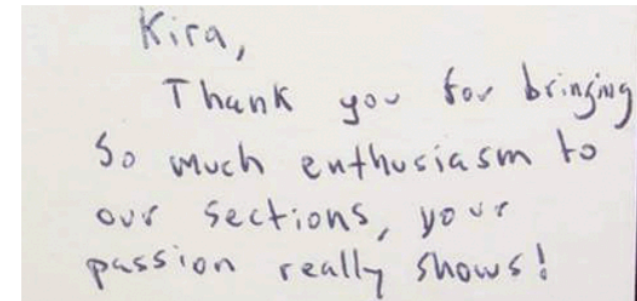 Kira,
Thank you for bringing
So much enthusiasm to
our sections, your
passion really shows!